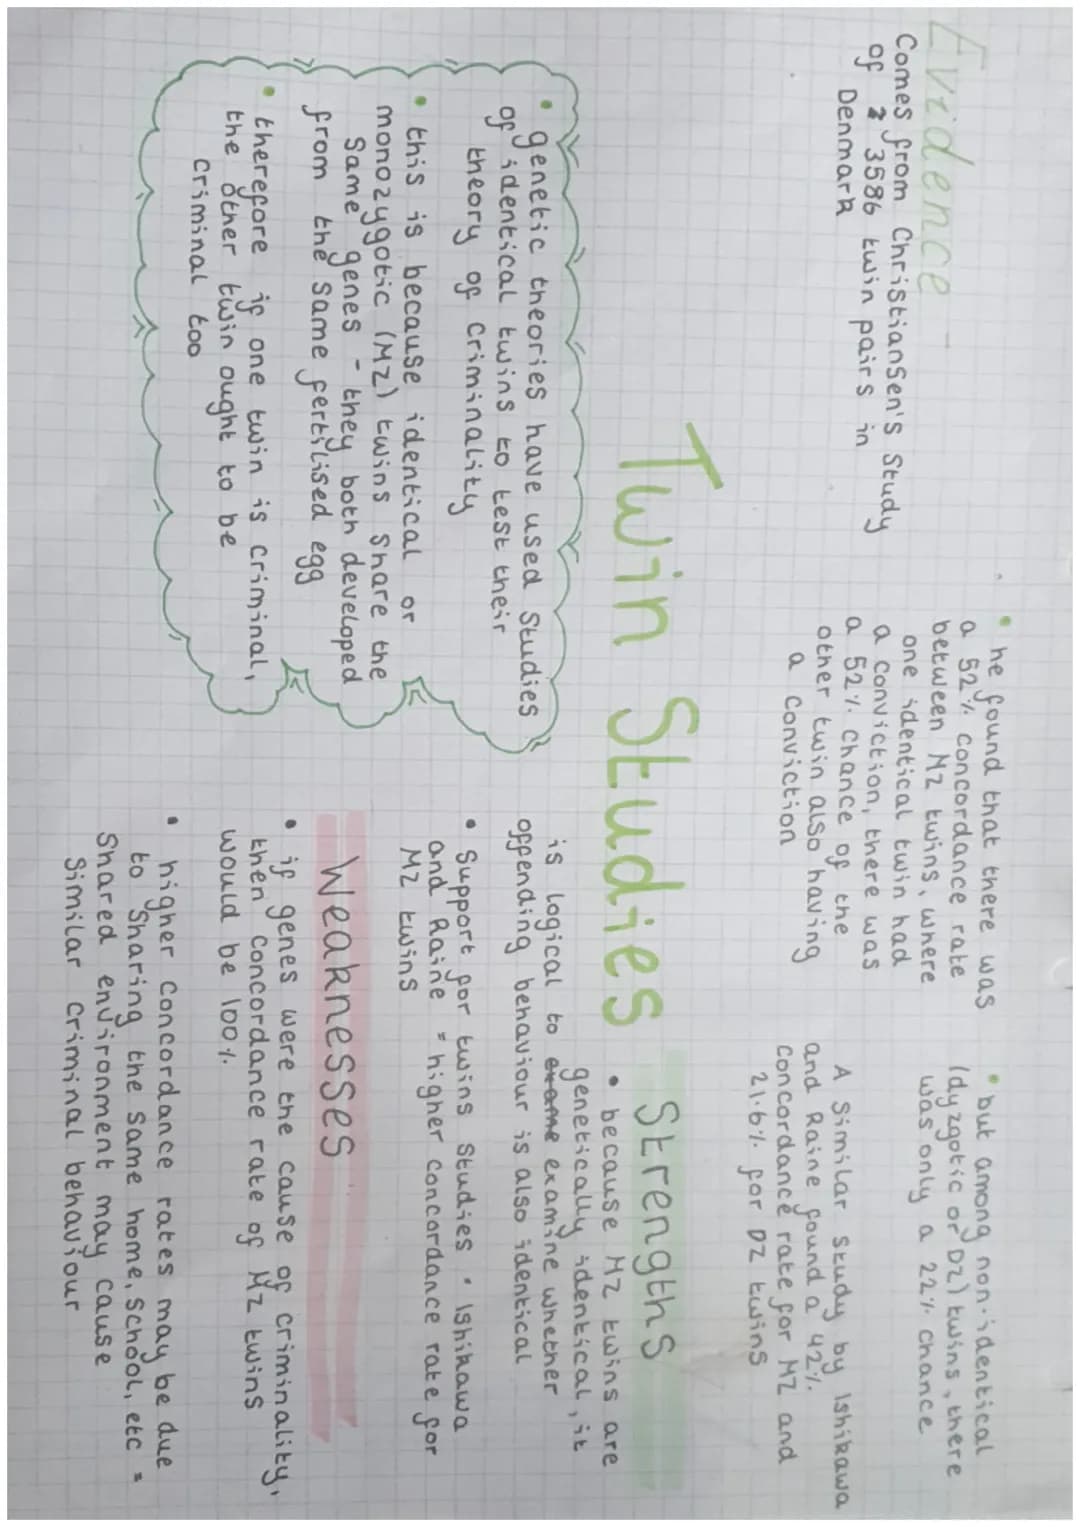 Evidence -
Comes from Christiansen's Study
of 3586 twin pairs in
Denmark
• he found that there was
a 52% concordance rate
between MZ twins, where
one identical twin had
a conviction, there was
a 52% chance of the
other twin also having
a conviction
• but among non-identical
(dyzgotic or DZ) twins, there
was only a 22% chance
A Similar Study by Ishikawa
and Raine found a 42%
concordance rate for MZ and
21.6% for DZ twins
Twin Studies
• genetic theories have used Studies
of identical twins to test their
theory of criminality
• this is because identical or
monozygotic (MZ) twins share the
Same genes - they both developed
from the same fertilised egg
• therefore if one twin is criminal,
the other twin ought to be
criminal too
Strengths
• because MZ twins are
genetically identical, it
is logical to exame examine whether
offending behaviour is also identical
• Support for twins Studies • Ishikawa
and Raine = higher concordance rate for
MZ twins
Weaknesses
• if genes were the cause of criminality,
then concordance rate of MZ twins
would be 100%
• higher concordance rates may be due
to Sharing the same home, School, etc =
Shared environment may cause
Similar criminal behaviour